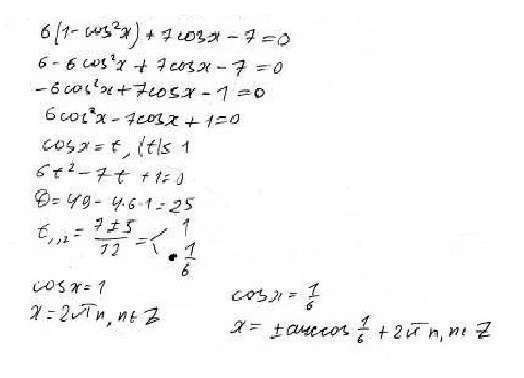 6(1-cos²x)+7cosx-7=0
6-6cos²x+7cosx-7=0
-6cos²x+7cosx-1=0
6cos²x-7cosx+1=0
cosx=t, |t|≤1
6t²-7t+1=0
D=49-4·6·1=25
t₁,₂=(7±5)/12=< 1
1/6
cosx=1
x=2πn, n∈Z
cosx=1/6
x=±arccos 1/6+2πn, n∈Z